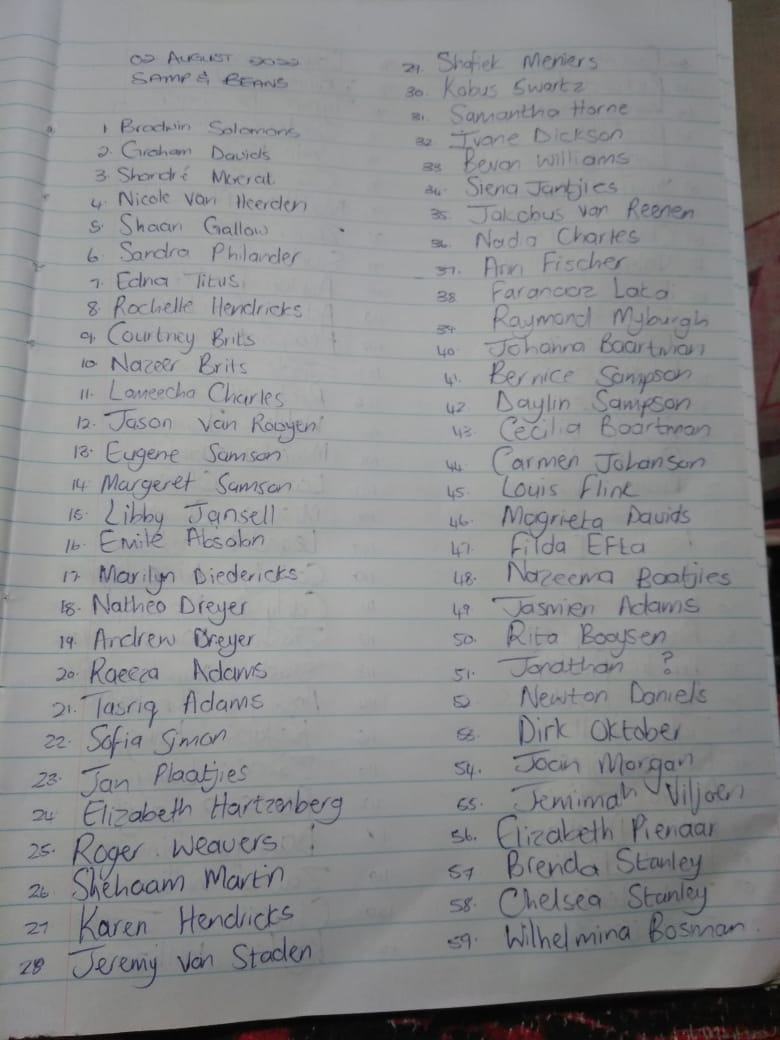 02 AUGUST 2022
SAMP & BEANS
1 Bradwin Solomons
2. Graham Davids
3. Shandré Moerat
4. Nicole Van Heerden
5. Shaan Gallow
6. Sandra Philander
7. Edna Titus
8. Rochelle Hendricks
9. Courtney Brits
10 Nazeer Brits
11. Lameecha Charles
12. Jason Van Rooyen
13. Eugene Samson
14. Margeret Samson
15. Libby Jansell
16. Emile Absolon
17. Marilyn Diedericks
18. Natheo Dreyer
19. Andrew Dreyer
20. Raeeza Adams
21. Tasriq Adams
22. Sofia Simon
23. Jan Plaatjies
24 Elizabeth Hartzenberg
25. Roger Weavers
26 Shehaam Martin
27 Karen Hendricks
28 Jeremy Van Staden
29. Shafiek Meniers
30. Kobus Swartz
31. Samantha Horne
32 Ivane Dickson
33 Bevan Williams
34. Siena Jantjies
35. Jakobus van Reenen
36. Nadia Charles
37. Ann Fischer
38 Faranaaz Lata
39. Raymond Myburgh
40. Johanna Baartman
41. Bernice Sampson
42. Daylin Sampson
43. Cecilia Baartman
44. Carmen Johanson
45. Louis Flink
46. Magrieta Davids
47. Filda Efta
48. Nazeema Baatjies
49 Jasmien Adams
50. Rita Booysen
51. Jonathan ?
52 Newton Daniels
53. Dirk Oktober
54. Joan Morgan
55. Jemimah Viljoen
56. Elizabeth Pienaar
57 Brenda Stanley
58. Chelsea Stanley
59. Wilhelmina Bosman.